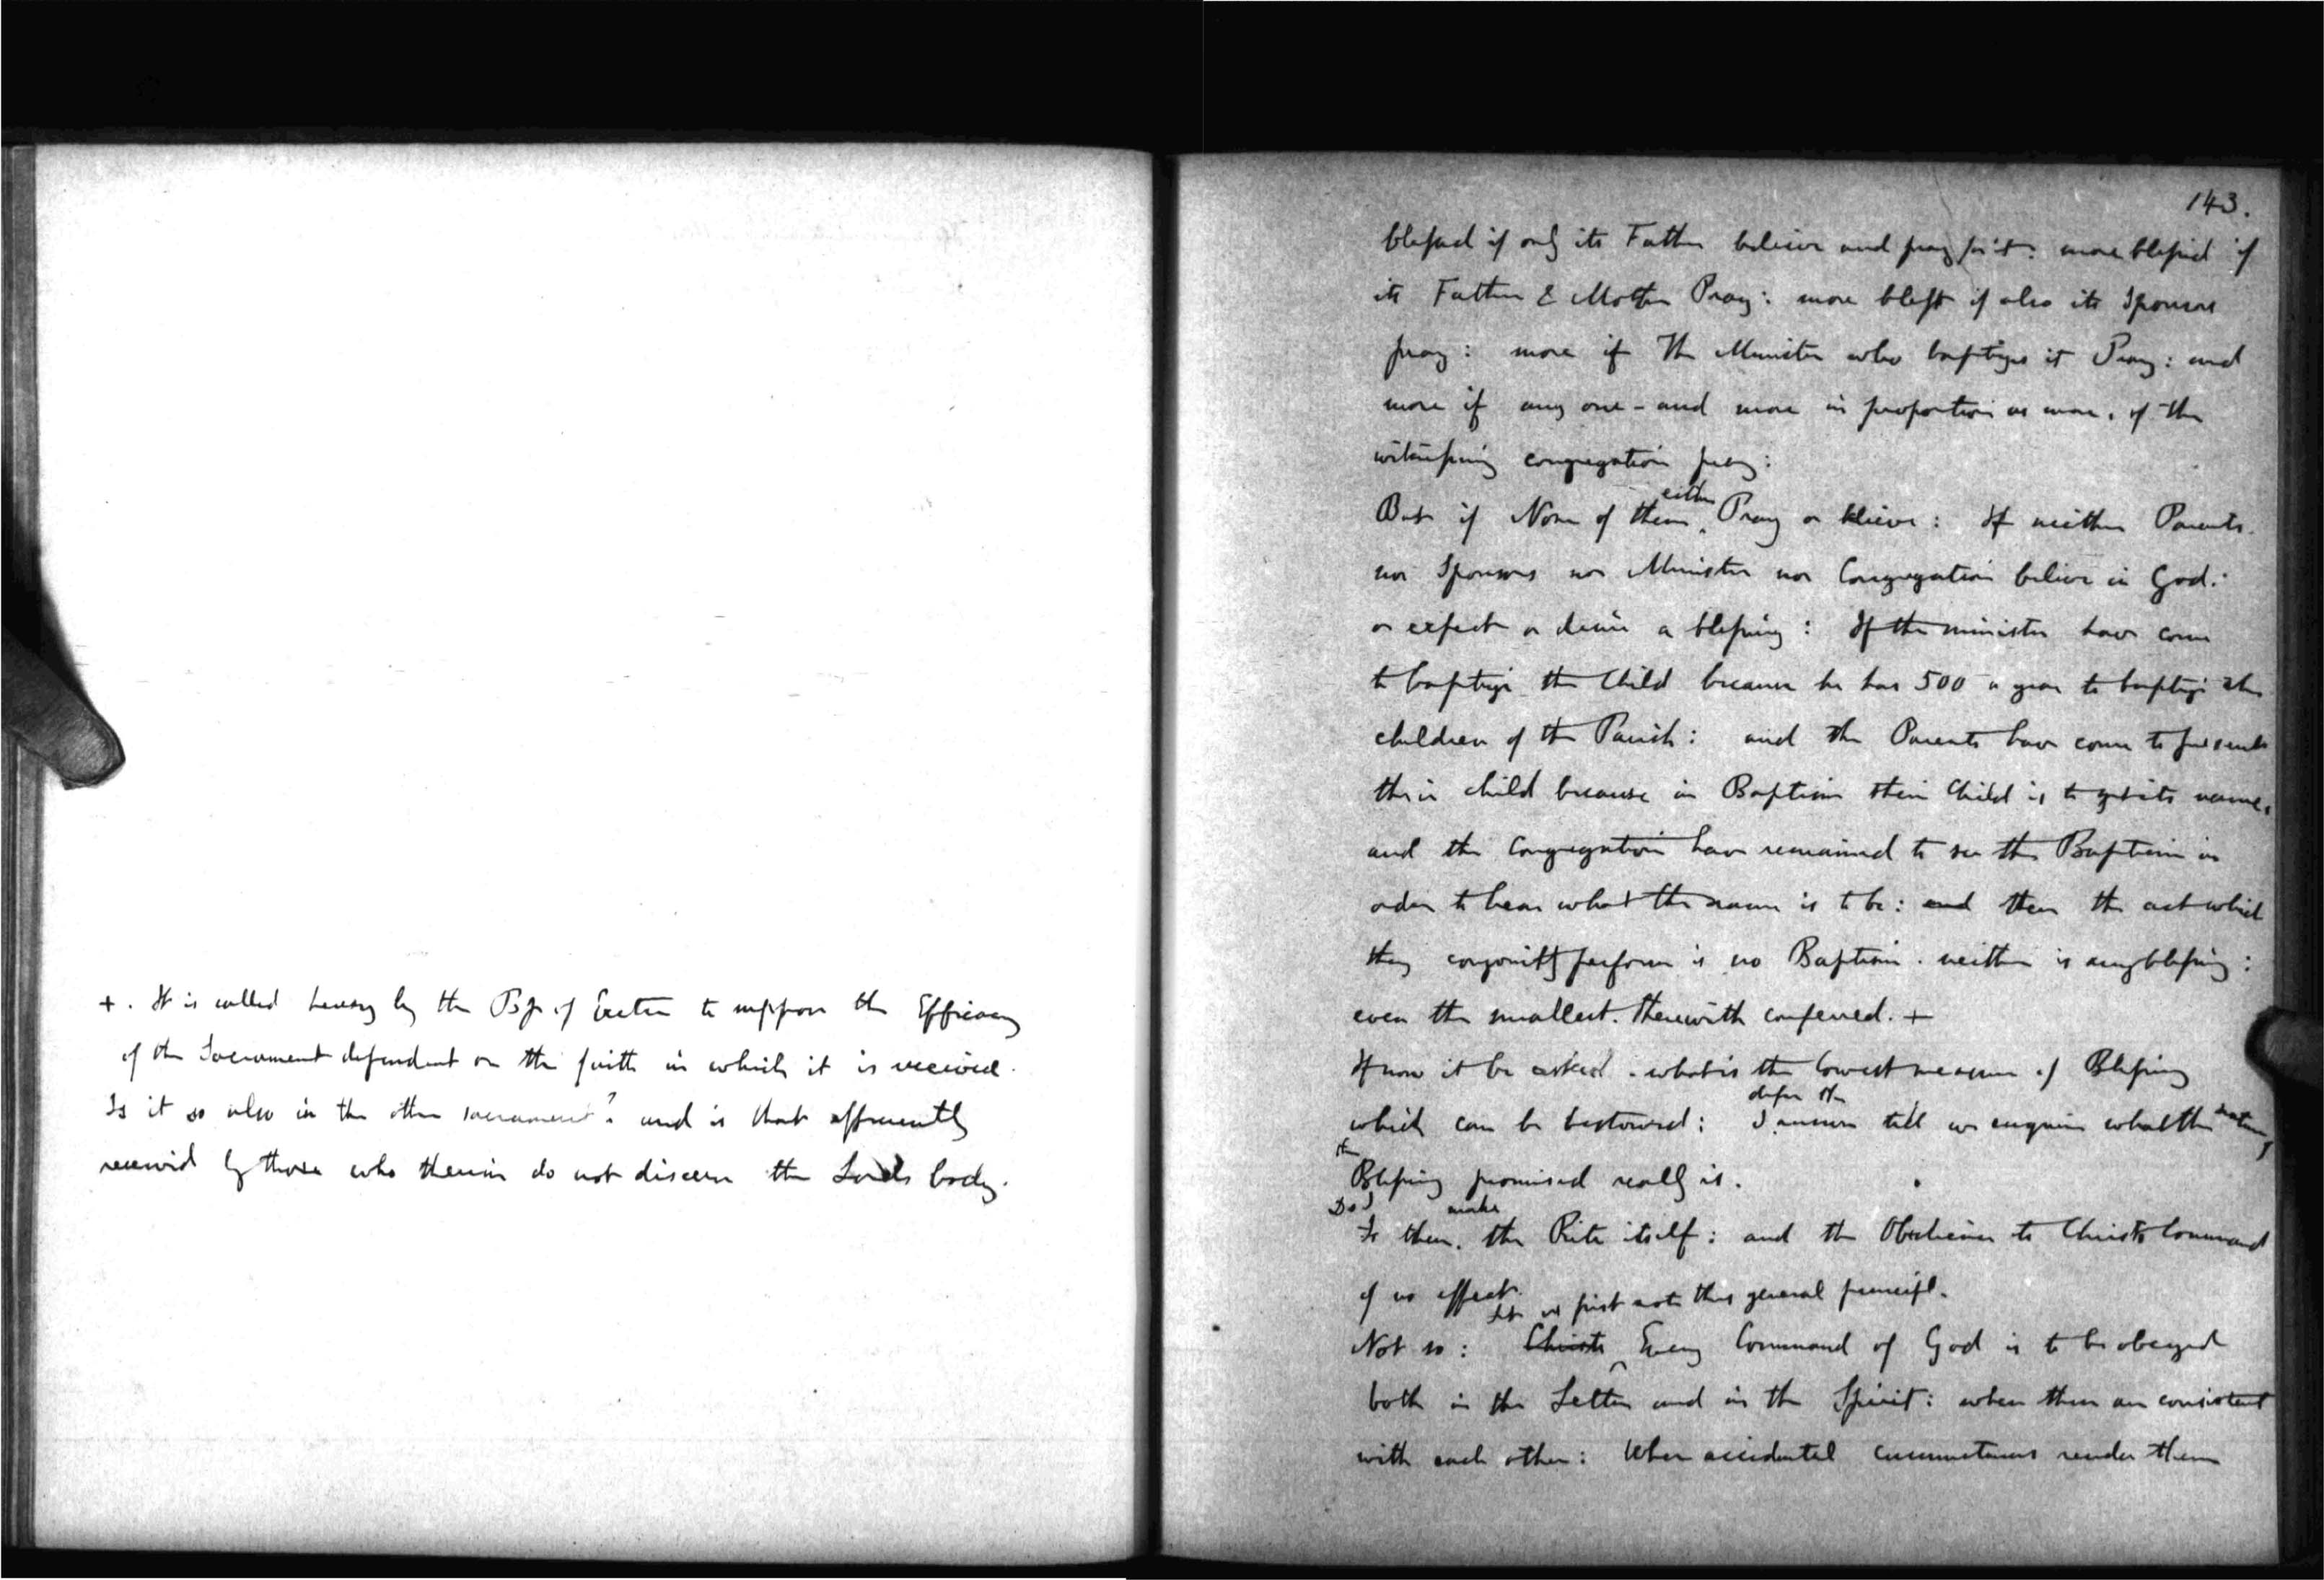 +. It is called heresy by the Bp of Exeter to suppose the Efficacy
of the Sacrament dependent on the faith in which it is received.
Is it so also in the other sacrament? and is that efficiently
received by those who therein do not discern the Lords body.
143.
blessed if only its Father believe and pray for it: more blessed if
its Father & Mother Pray: more blesst if also its Sponsors
pray: more if The Minister who baptizes it Pray: and
more if any one - and more in proportion as more, of the
witnessing congregation pray:
But if None of them either Pray or believe: If neither Parents.
nor Sponsors nor Minister nor Congregation believe in God:
or expect or desire a blessing: If the minister have come
to baptize the Child because he has 500 a year to baptize the
children of the Parish: and the Parents have come to present
their child because in Baptism their Child is to get its name,
and the Congregation have remained to see the Baptism in
order to hear what the name is to be: and then the act which
they conjointly perform is no Baptism. neither is any blessing:
even the smallest. therewith conferred. +
If now it be asked. what is the lowest measure of Blessing
which can be bestowed: I defer the answer till we enquire what the nature,
the Blessing promised really is.
Do I
Is then. make the Rite itself: and the Obedience to Christs Command
of no effect.
Let us first note this general principle.
Not so: Christs Every Command of God is to be obeyed
both in the Letter and in the Spirit: when these are consistent
with each other: When accidental circumstances render them